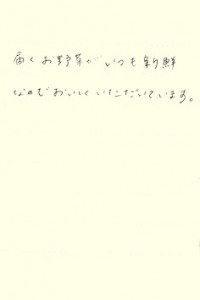 届くお野菜がいつも新鮮
なのでおいしくいただいています。